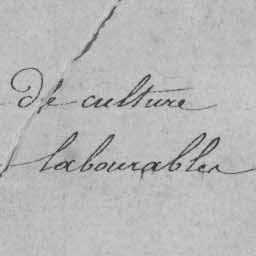 De culture
labourables